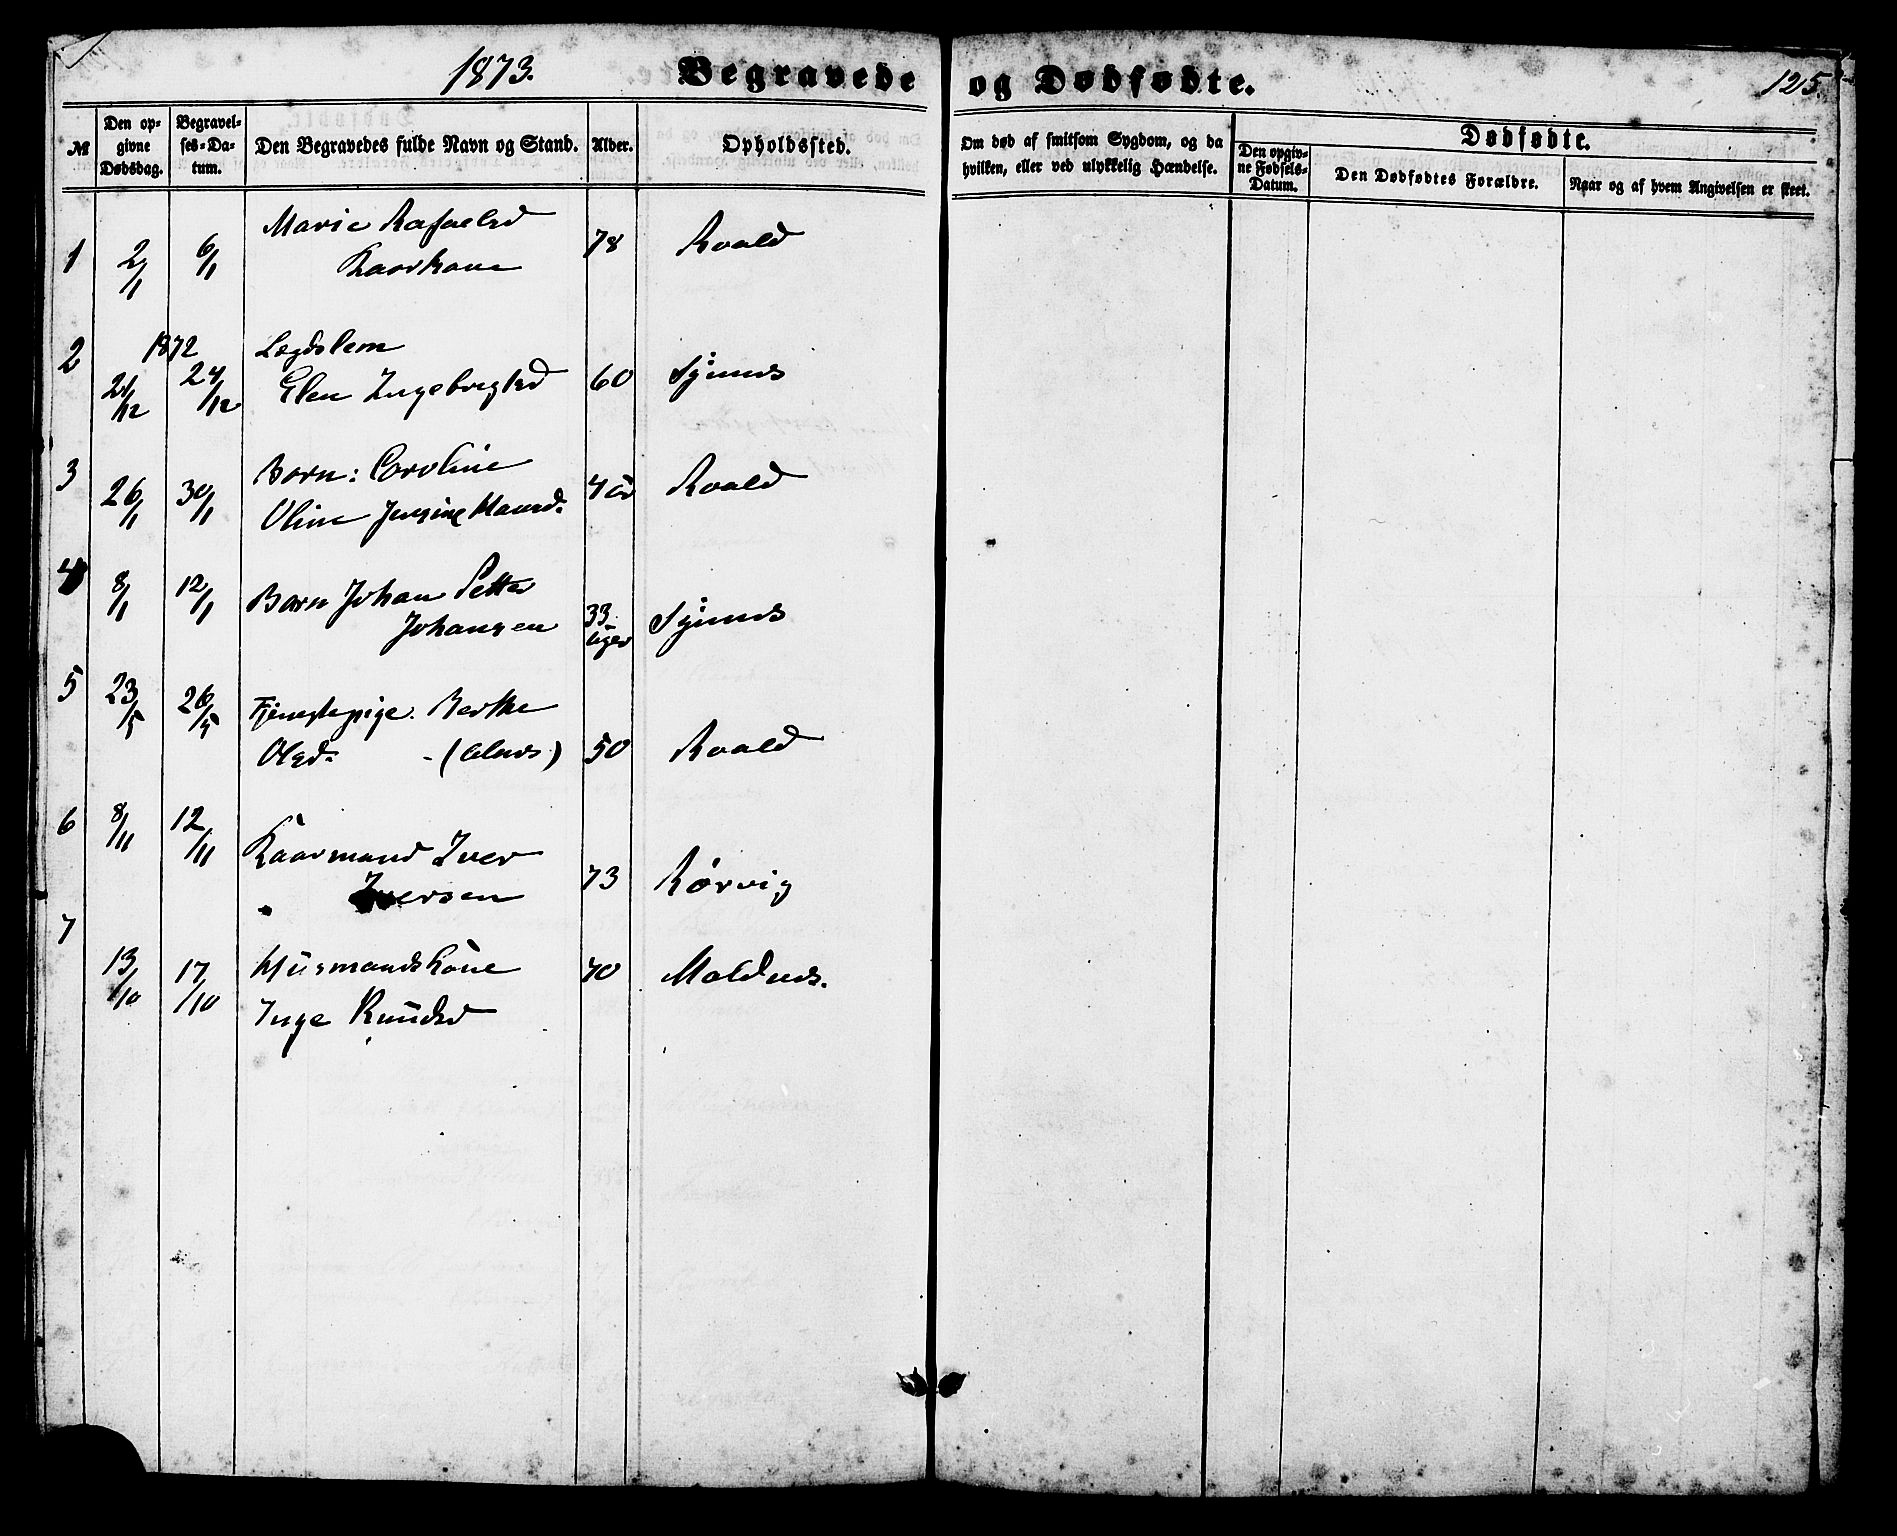 1873. Begravede og Dødfødte. 125.
№ Den opgivne Dødsdag. Begravelses-Datum. Den Begravedes fulde Navn og Stand. Alder. Opholdssted. Om død af smitsom Sygdom, og da hvilken, eller ved ulykkelig Hændelse. Dødfødte.
Den opgivne Fødsels-Datum. Den Dødfødtes Forældre. Naar og af hvem Angivelsen er skeet.
1 2/1 6/1 Marie Rafaelsd 78 Roald
Kaarkone
2 1872 Lægdslem
21/12 24/12 Elen Ingebrigtsd 60 Synnes
3 26/1 30/1 Barn: Caroline 4 år Roald
Oline Jensine Hansd.
4 8/1 12/1 Barn Johan Petter
Johansen 33 uger Synnes
5 23/5 26/5 Tjenestepige. Berthe
Olsd. - 50 Roald
6 8/11 12/11 Kaarmand Iver
" Iversen 73 Rørvig
7 13/10 17/10 Husmandskone 70 Moldnes.
Inge Knudsd